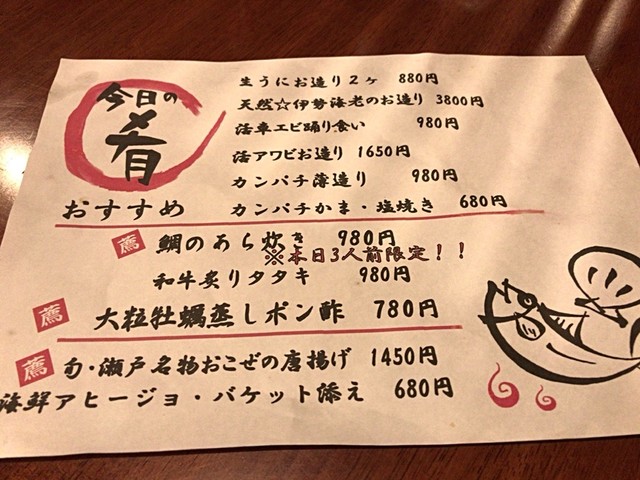 今日の
肴
おすすめ
生うにお造り2ヶ 880円
天然☆伊勢海老のお造り 3800円
活車エビ踊り食い 980円
活アワビお造り 1650円
カンパチ薄造り 980円
カンパチかま・塩焼き 680円
薦 鯛のあら炊き 980円
※本日3人前限定!!
和牛炙りタタキ 980円
薦 大粒牡蠣蒸しポン酢 780円
薦 旬・瀬戸名物おこぜの唐揚げ 1450円
海鮮アヒージョ・バケット添え 680円